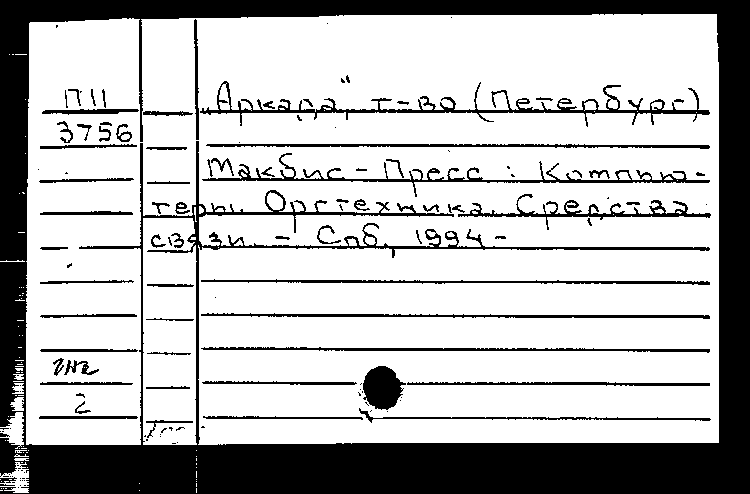 П11 „Аркада", т-во (Петербург)
3756
Макбис - Пресс : Компью-
теры. Оргтехника. Средства
связи. - Спб., 1994 -
2